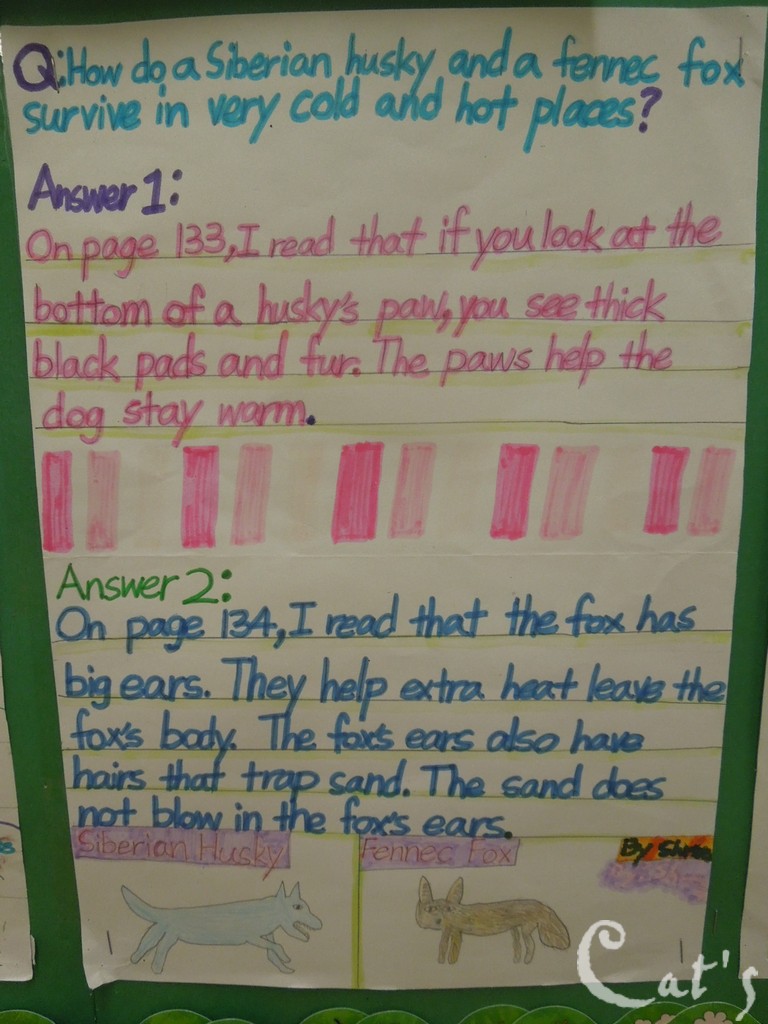 Q: How do a Siberian husky and a fennec fox
survive in very cold and hot places?
Answer 1:
On page 133, I read that if you look at the
bottom of a husky's paw, you see thick
black pads and fur. The paws help the
dog stay warm.
Answer 2:
On page 134, I read that the fox has
big ears. They help extra heat leave the
fox's body. The fox's ears also have
hairs that trap sand. The sand does
not blow in the fox's ears.
Siberian Husky
Fennec Fox
By
Cat's